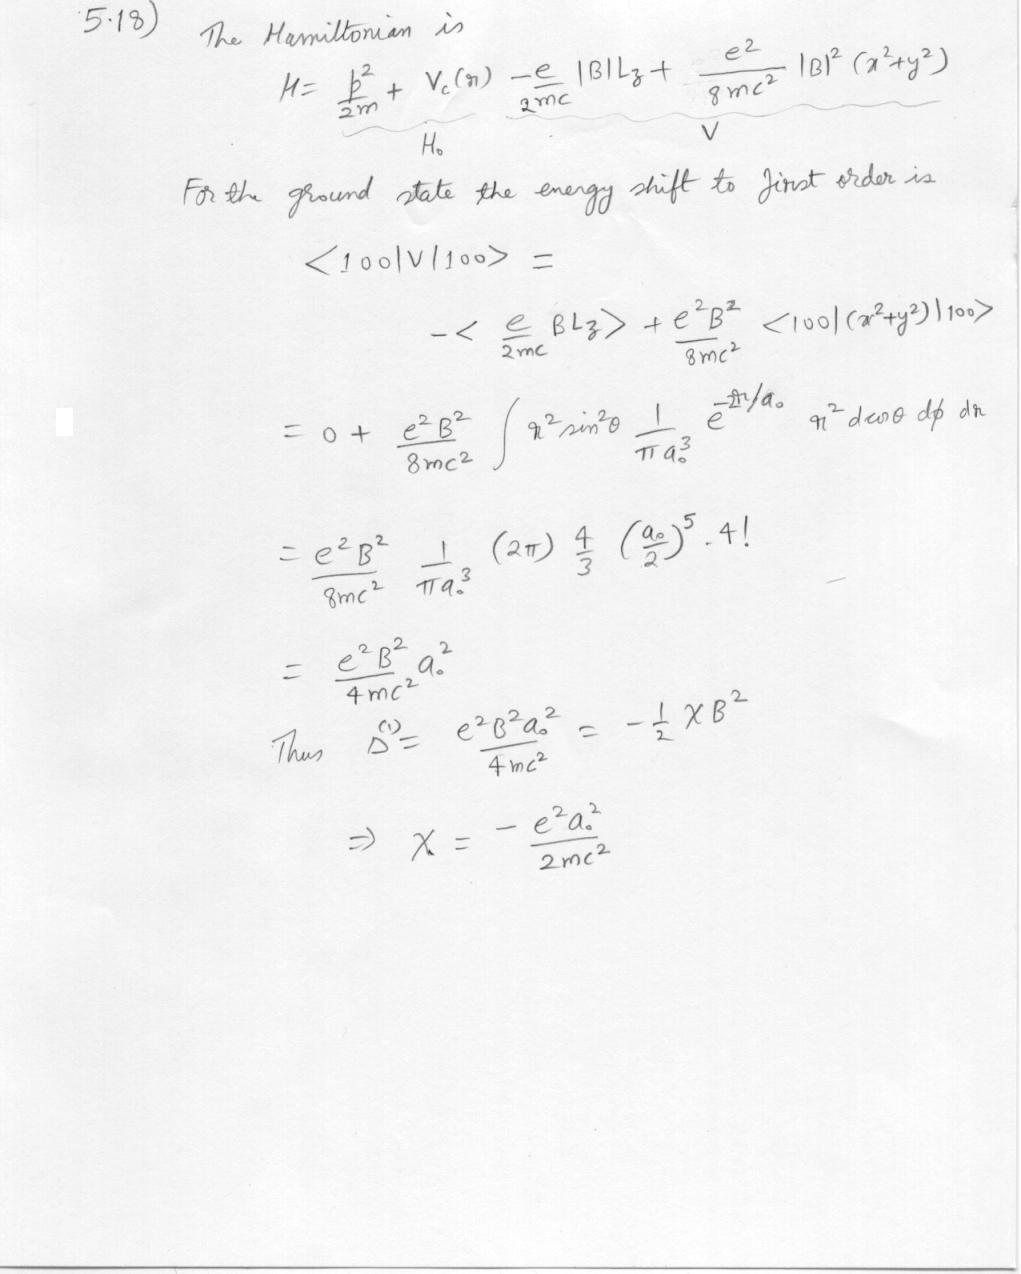 5.18) The Hamiltonian is
H = p²/2m + V_c(r) - e/2mc |B|L_z + e²/8mc² |B|² (x²+y²)
H₀ V
For the ground state the energy shift to first order is
<100|V|100> =
-< e/2mc BL_z> + e²B²/8mc² <100|(x²+y²)|100>
= 0 + e²B²/8mc² ∫ r² sin²θ 1/πa₀³ e^(-2r/a₀) r² dcosθ dϕ dr
= e²B²/8mc² 1/πa₀³ (2π) 4/3 (a₀/2)⁵ . 4!
= e²B²/4mc² a₀²
Thus Δ⁽¹⁾ = e²B²a₀²/4mc² = -1/2 χB²
⇒ χ = - e²a₀²/2mc²